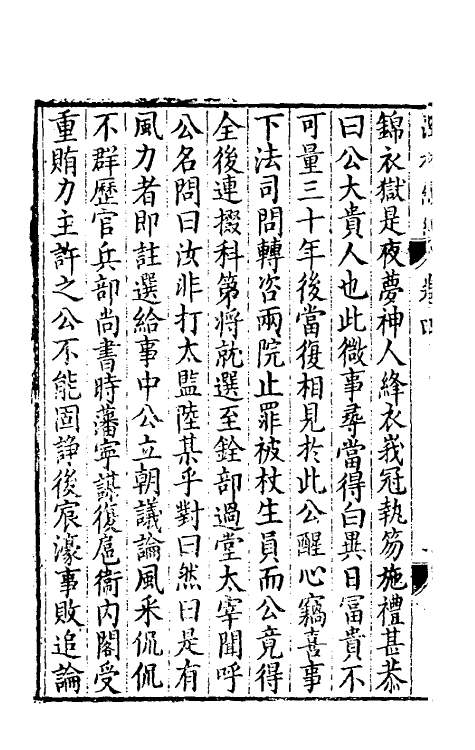 錦衣獄是夜夢神人絳衣峩冠執笏施禮甚恭
曰公大貴人也此微事尋當得白異日富貴不
可量三十年後當復相見於此公醒心竊喜事
下法司問轉咨兩院止罪被杖生員而公竟得
全後連掇科第將就選至銓部過堂太宰聞呼
公名問曰汝非打太監陸某乎對曰然曰是有
風力者即註選給事中公立朝議論風采侃侃
不群歷官兵部尚書時藩寧謀復扈衞內閣受
重賄力主許之公不能固諍後宸濠事敗追論